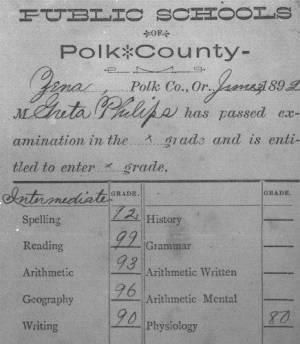 PUBLIC SCHOOLS
OF
Polk*County-
Zena, Polk Co., Or., June 1892
M Greta Philips has passed ex-
amination in the x grade and is enti-
tled to enter x grade.
Intermediate GRADE. GRADE.
Spelling 72 History —
Reading 99 Grammar —
Arithmetic 93 Arithmetic Written —
Geography 96 Arithmetic Mental —
Writing 90 Physiology 80